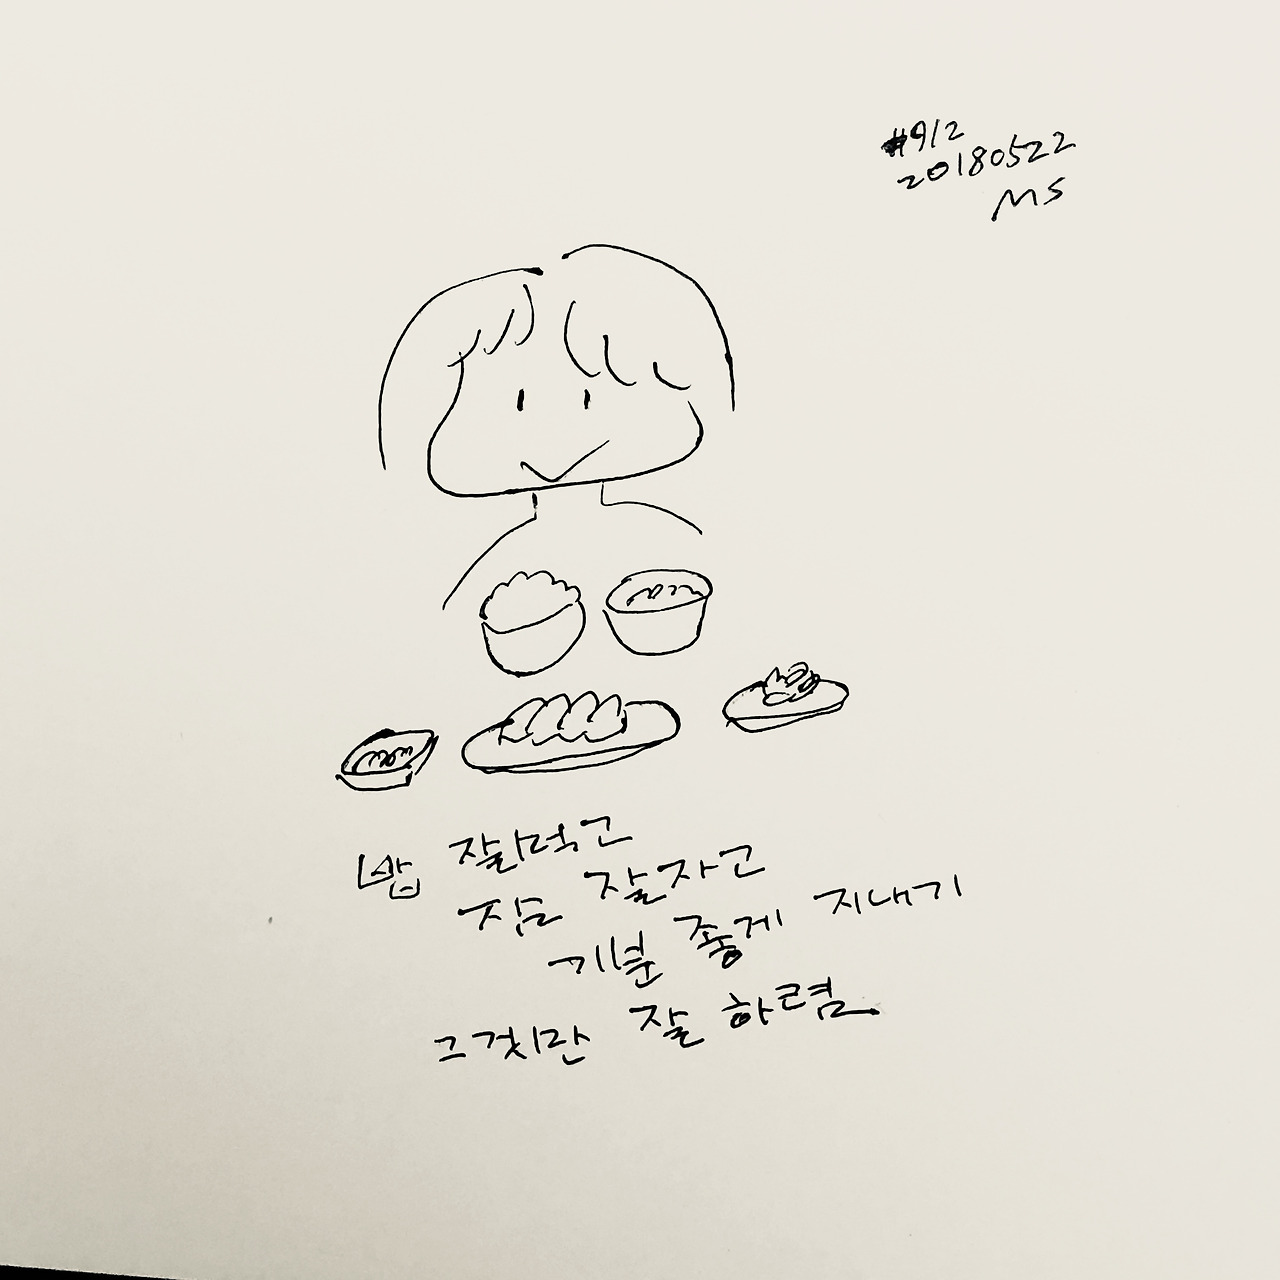 #912
20180522
MS
밥 잘먹고
잠 잘자고
기분 좋게 지내기
그것만 잘 하렴